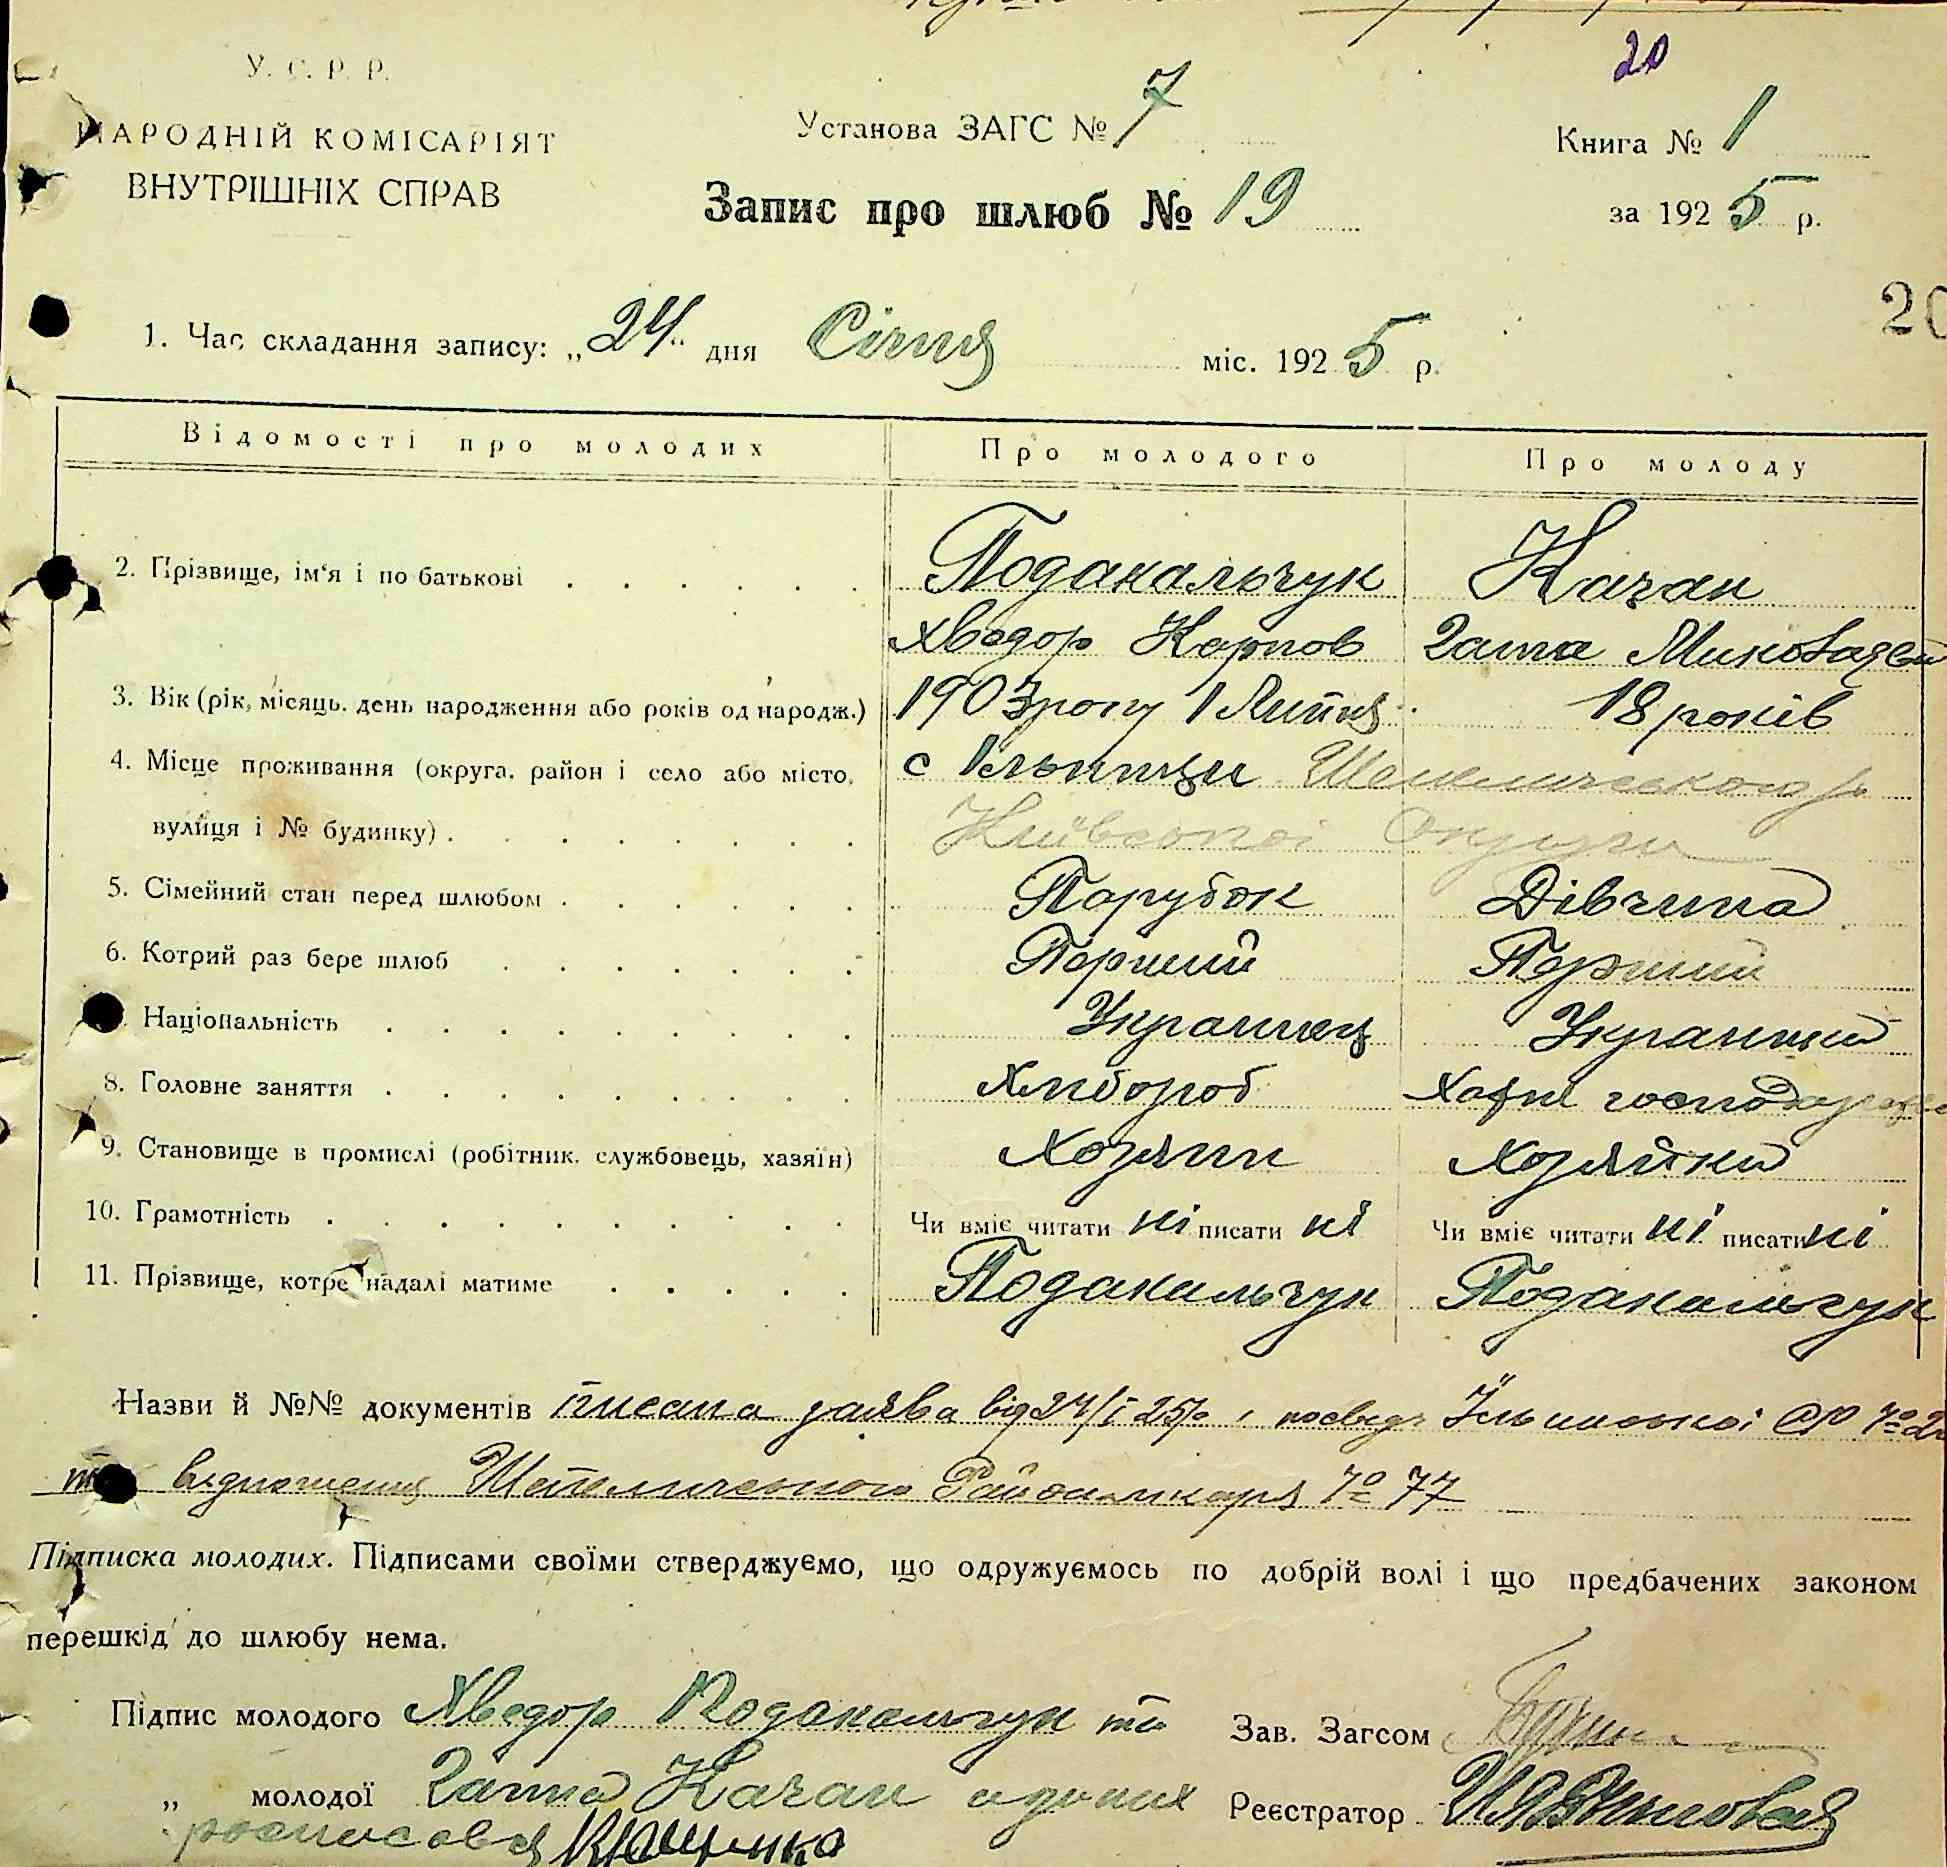 20
У. С. Р. Р.
НАРОДНІЙ КОМІСАРІЯТ
ВНУТРІШНІХ СПРАВ
Установа ЗАГС № 7
Книга № 1
Запис про шлюб № 19
за 1925 р.
20
1. Час складання запису: „24“ дня Січня міс. 1925 р.
Відомості про молодих Про молодого Про молоду
2. Прізвище, ім‘я і по батькові Подакальчук Качан
Хведор Карпов Ганна
3. Вік (рік, місяць, день народження або років од народж.) 1903 року 1 Липня 18 років
4. Місце проживання (округа, район і село або місто, с Ільинци Шепелического р
вулиця і № будинку) Київської Округи
5. Сімейний стан перед шлюбом Парубок Дівчина
6. Котрий раз бере шлюб Перший Перший
Національність Украинец Украинка
8. Головне заняття Хлибороб Хатне
9. Становище в промислі (робітник, службовець, хазяїн) Хозяин Хозяйка
10. Грамотність Чи вміє читати ні писати ні Чи вміє читати ні писати ні
11. Прізвище, котре надалі матиме Подакальчук Подакальчук
Назви й №№ документів писана заява від 24/I 25р і посвідч Їльинської
та відношення Шепелического № 77
Підписка молодих. Підписами своїми стверджуємо, що одружуємось по добрій волі і що предбачених законом
перешкід до шлюбу нема.
Підпис молодого Хведор Подакальчук та Зав. Загсом
„ молодої Ганна Качан Реєстратор
росписовся